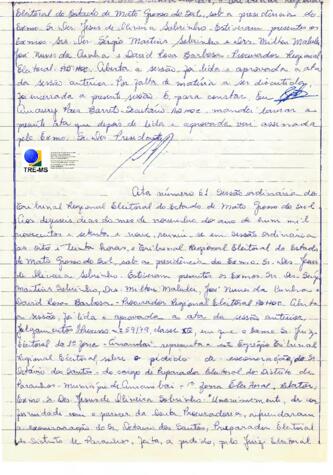 Eleitoral do Estado de Mato Grosso do Sul, sob a presidência do
Exmo. Sr. Des. Jesus de Oliveira Sobrinho. Estiveram presentes os
Exmos. Srs. Drs. Sérgio Martins Sobrinho e Drs. Milton Malulei,
José Nunes da Cunha e David Rosa Barbosa - Procurador Regional
Eleitoral AD HOC. Aberta a sessão, foi lida e aprovada a ata
da sessão anterior. Por falta de matéria a ser discutida, foi
encerrada a presente sessão. E, para constar, Eu
Secretário AD HOC, mandei lavrar a
presente Ata que depois de lida e aprovada vai assinada
pelo Exmo. Sr. Des. Presidente.
TRE-MS
Ata número 61. Sessão ordinária do
Tribunal Regional Eleitoral do Estado de Mato Grosso do Sul.
Aos dezesseis dias do mês de novembro do ano de hum mil
novecentos e setenta e nove, reuniu-se em sessão ordinária
as oito e trinta horas, o Tribunal Regional Eleitoral do Estado
de Mato Grosso do Sul, sob a presidência do Exmo. Sr. Des. Jesus
de Oliveira Sobrinho. Estiveram presentes os Exmos. Srs. Des. Sérgio
Martins Sobrinho, Drs. Milton Malulei, José Nunes da Cunha e
David Rosa Barbosa - Procurador Regional Eleitoral AD HOC. Aberta a
sessão, foi lida e aprovada a ata da sessão anterior.
Julgamentos: Processo nº 259/79, classe em que o Exmo. Sr. Juiz
Eleitoral da 1ª Zona - Amambai - representa a este Egrégio Tribunal
Regional Eleitoral sobre o pedido de exoneração do Sr.
Octávio dos Santos, do cargo de Preparador Eleitoral do Distrito de
Paranhos - Município de Amambai - 1ª Zona Eleitoral, Relator,
Exmo. Sr. Des. Jesus de Oliveira Sobrinho. "Unanimemente, de con-
formidade com o parecer da Douta Procuradoria, referendaram
a exoneração do Sr. Octávio dos Santos, Preparador Eleitoral
do Distrito de Paranhos, feita, a pedido, pelo Juiz Eleitoral